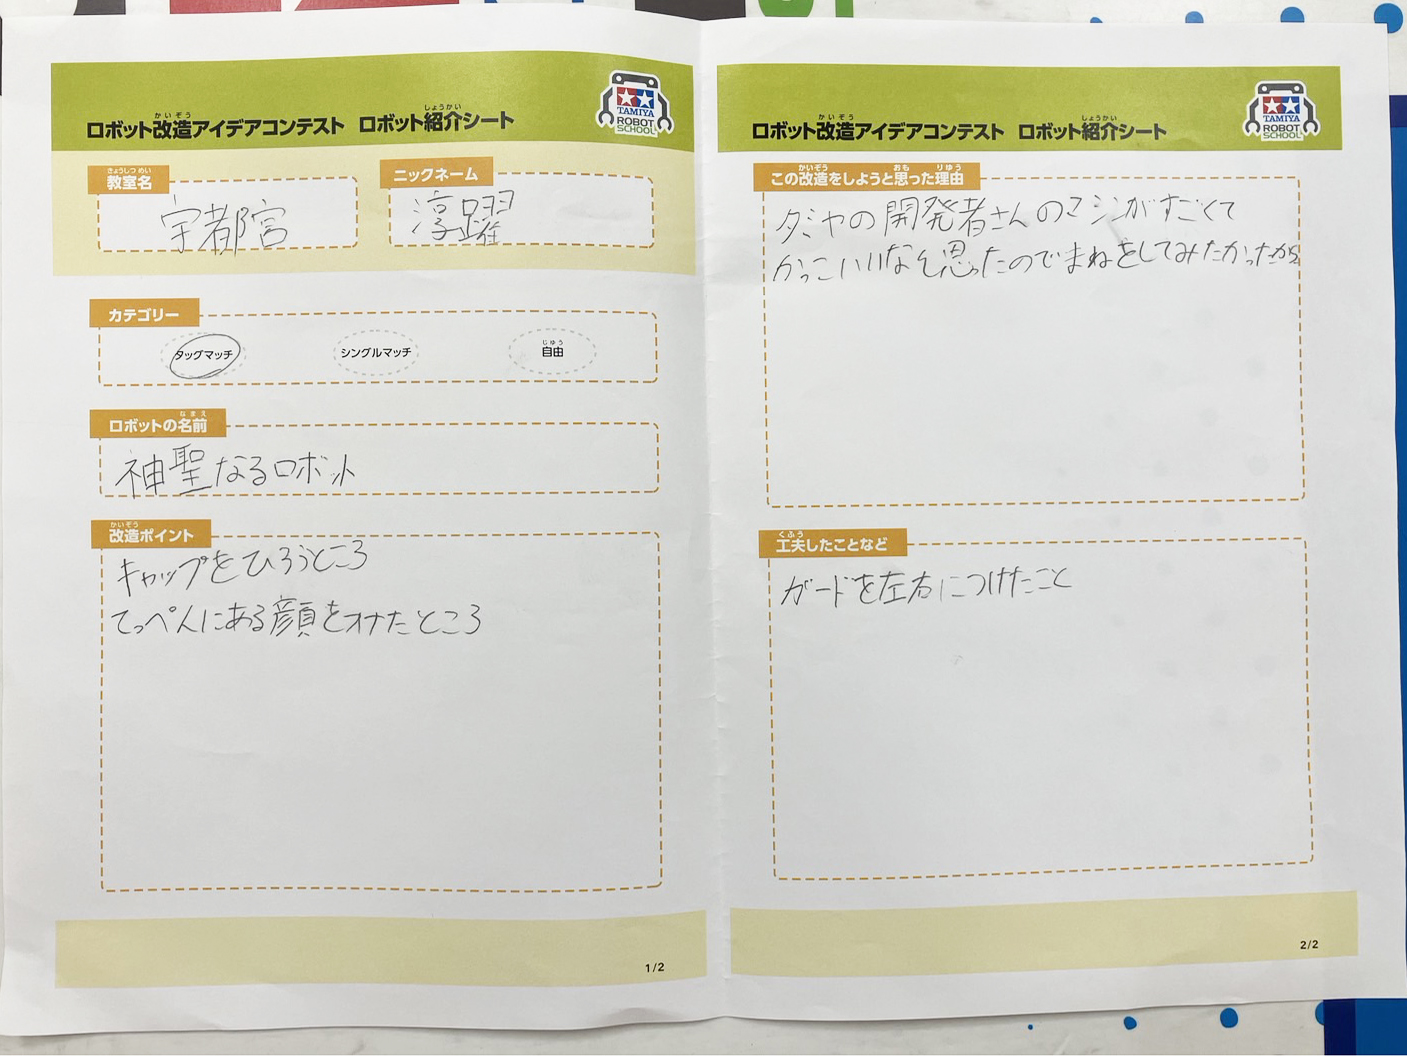 ロボット改造アイデアコンテスト ロボット紹介シート
TAMIYA
ROBOT
SCHOOL
教室名
宇都宮
ニックネーム
淳躍
カテゴリー
タッグマッチ
シングルマッチ
自由
ロボットの名前
神聖なるロボット
改造ポイント
キャップをひろうところ
てっぺんにある顔をオナたところ
1/2
ロボット改造アイデアコンテスト ロボット紹介シート
TAMIYA
ROBOT
SCHOOL
この改造をしようと思った理由
タミヤの開発者さんのマシンがすごくて
かっこいいなと思ったのでまねをしてみたかったから
工夫したことなど
ガードを左右につけたこと
2/2